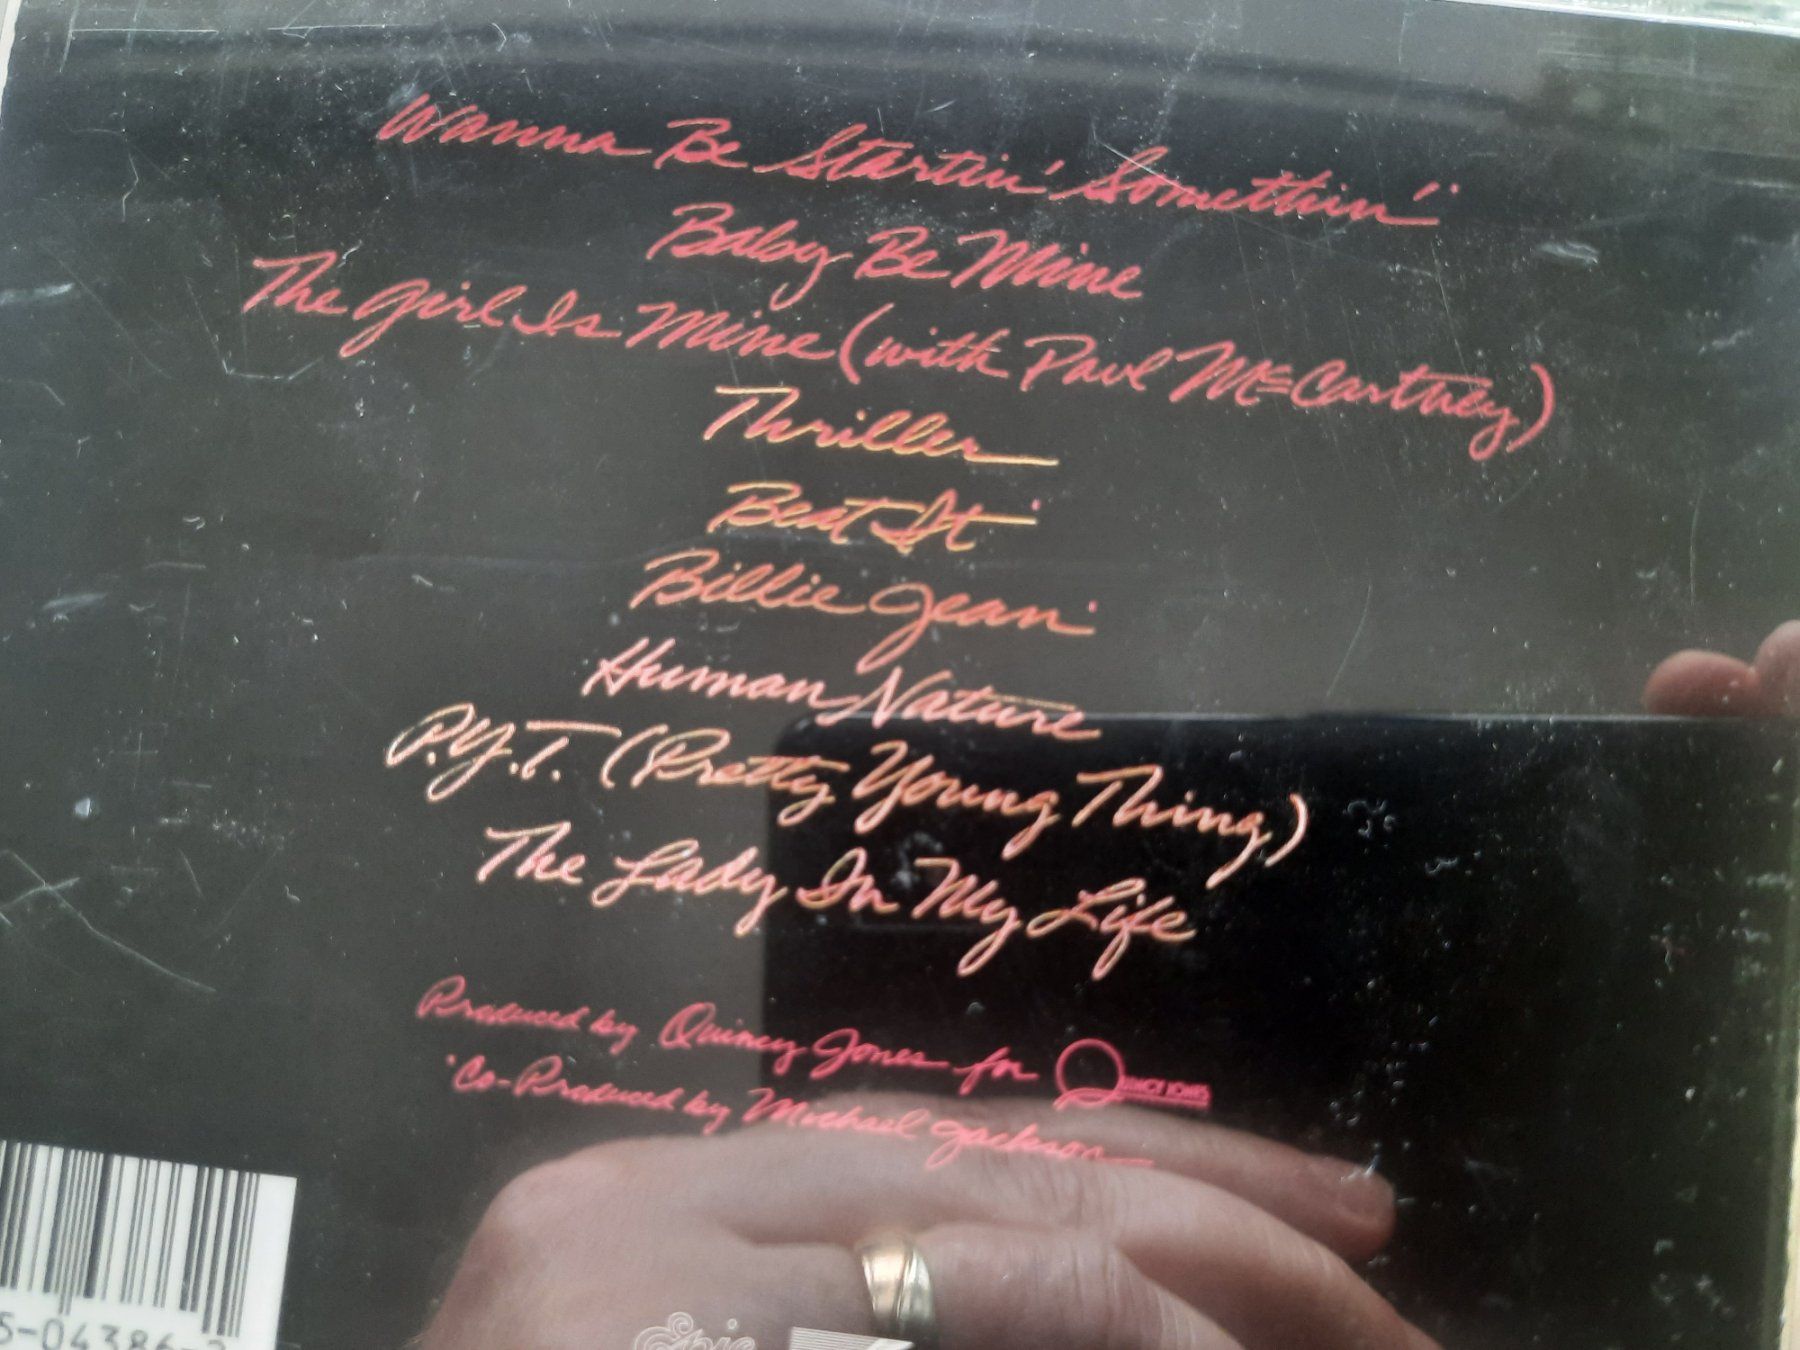 Wanna Be Startin' Somethin'·
Baby Be Mine
The Girl Is Mine (with Paul McCartney)
Thriller
Beat It·
Billie Jean·
Human Nature
P.Y.T. (Pretty Young Thing)
The Lady In My Life
Produced by Quincy Jones for QUINCY JONES
·Co-Produced by Michael Jackson
5-04386-2
Epic